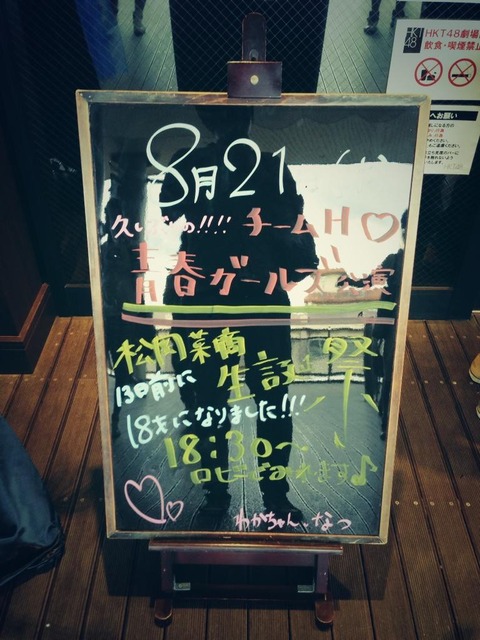 HKT48
HKT48劇場
飲食・喫煙禁止
へお願い
8月21
久しぶりの!!!! チームH♡
青春ガールズ公演
松岡菜摘
生誕祭
13日前に
18才になりました!!!
18:30〜
ロビーでみえます♪
わかちゃん、なつ